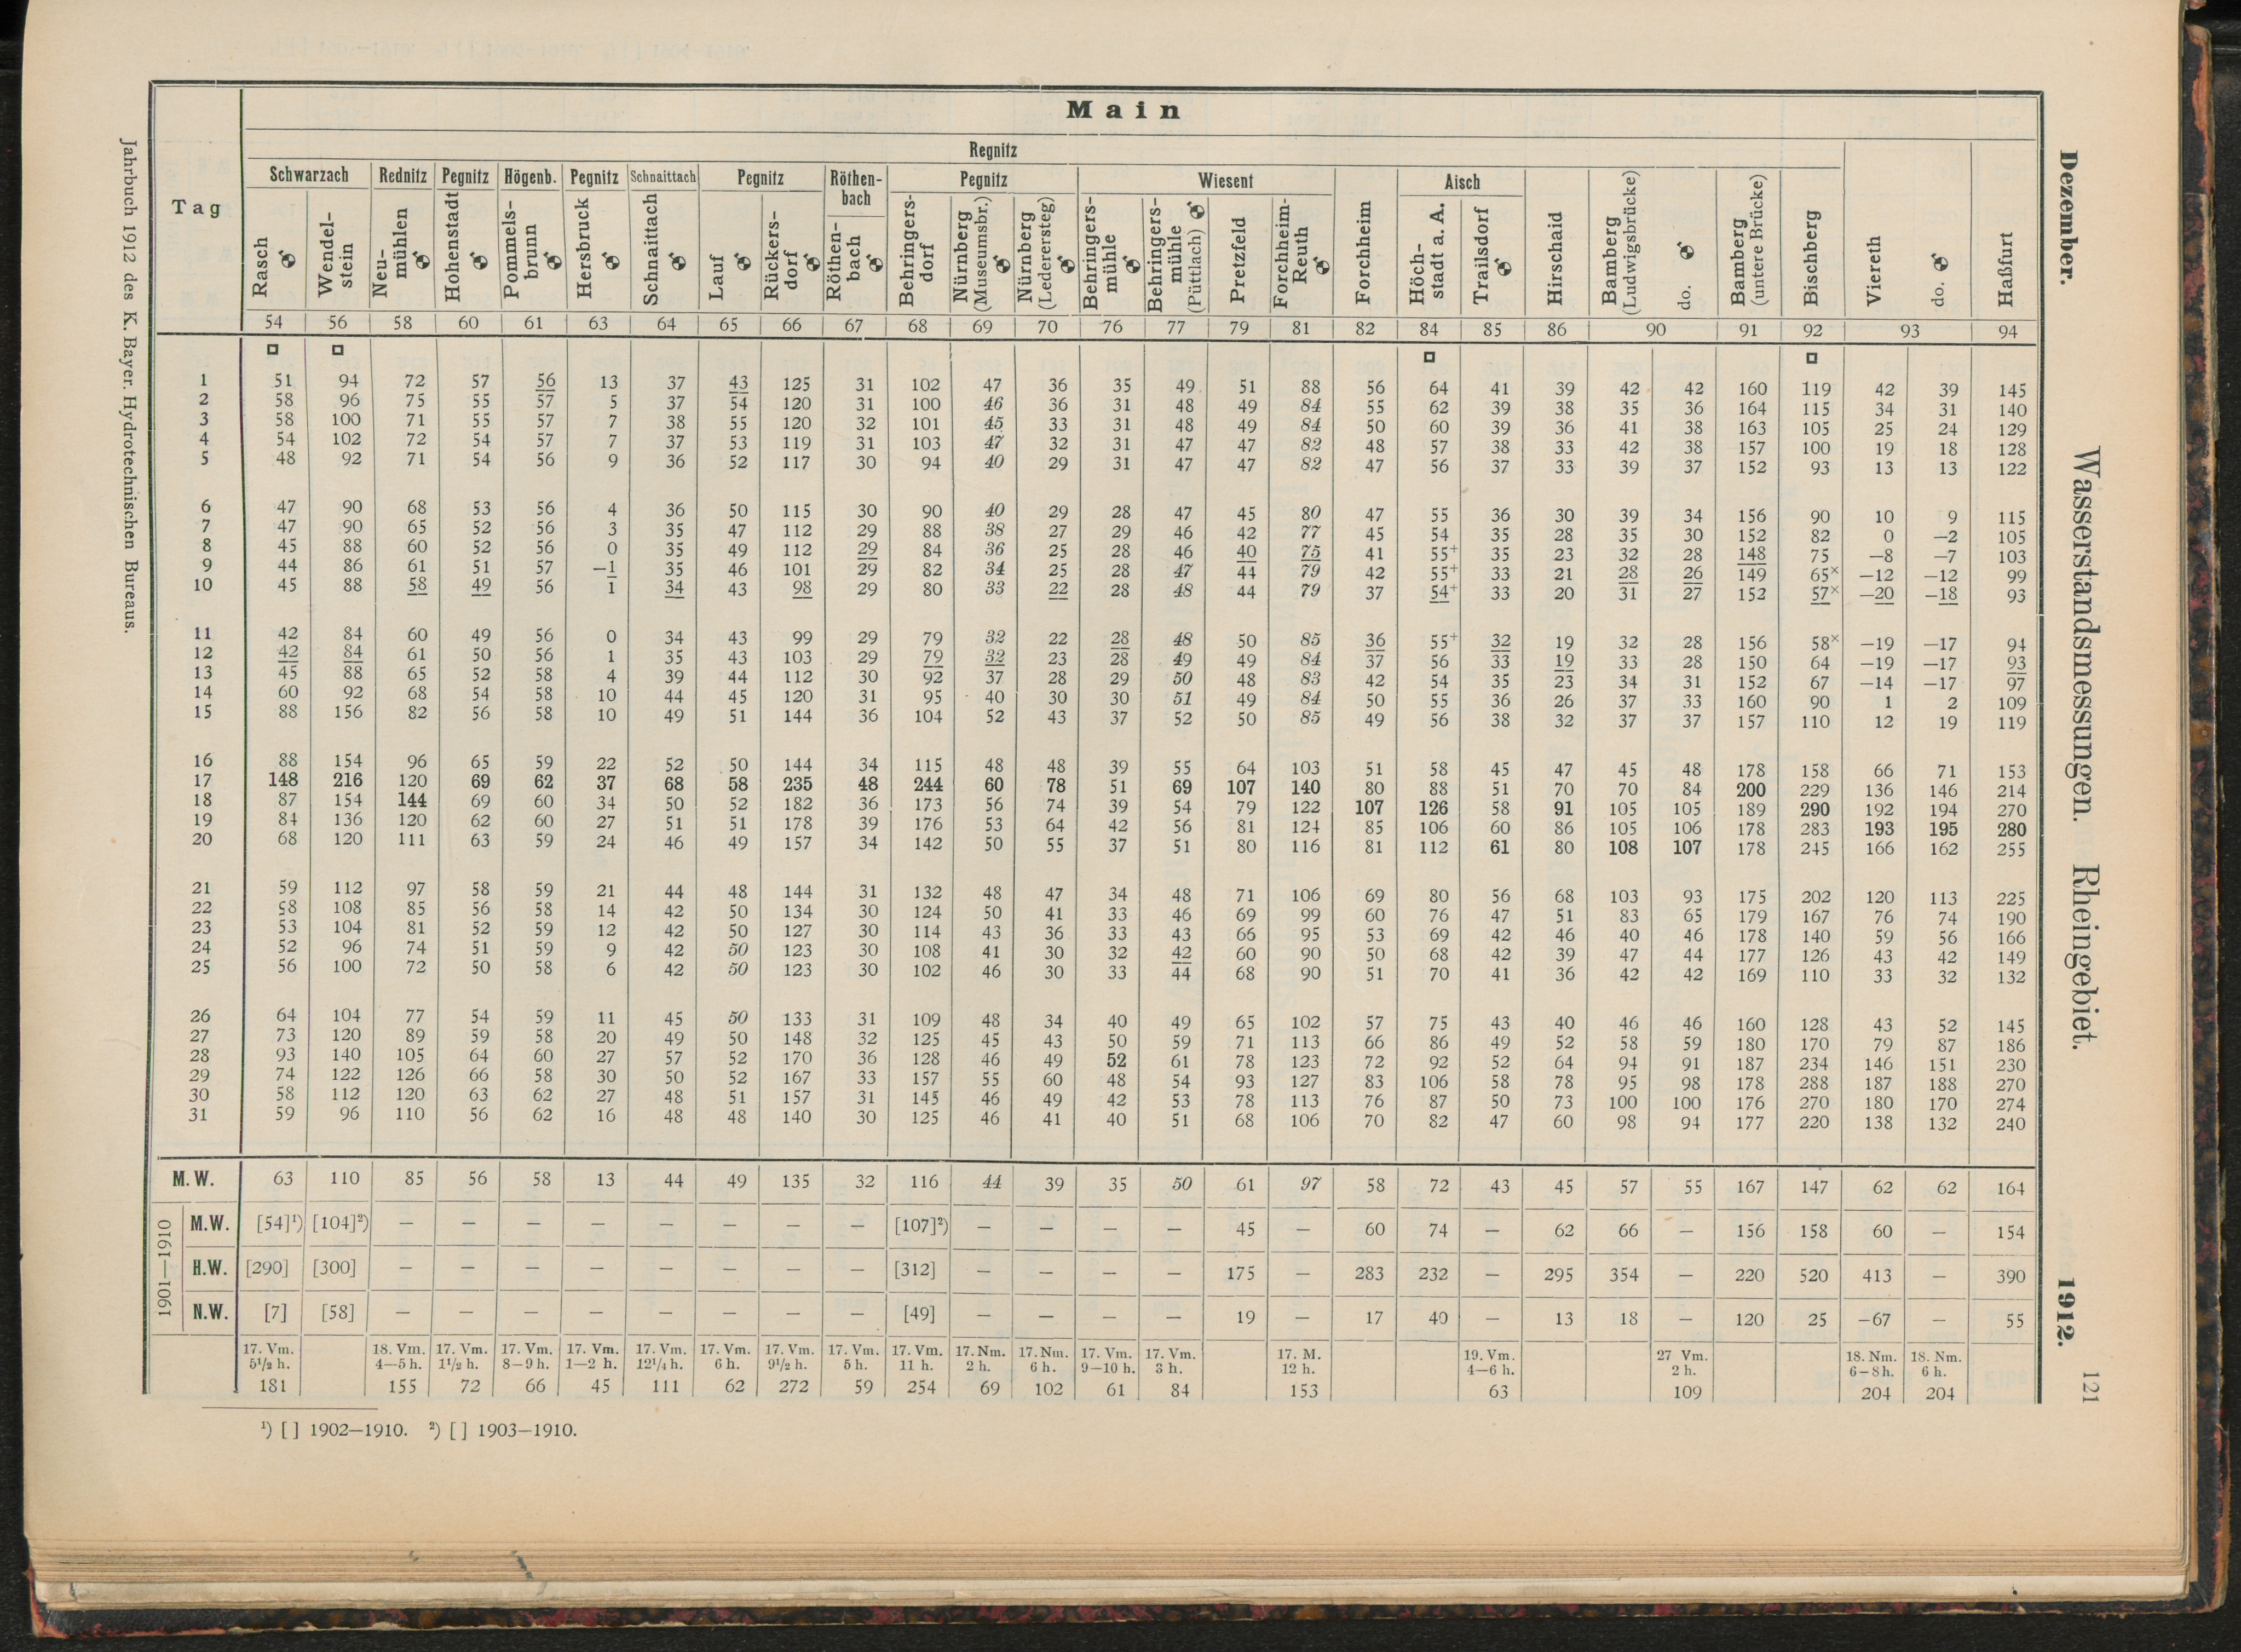 Main
Regnitz
Tag Schwarzach Rednitz Pegnitz Högenb. Pegnitz Schnaittach Pegnitz Röthenbach Pegnitz Wiesent Aisch
Rasch Wendelstein Neumühlen Hohenstadt Pommelsbrunn Hersbruck Schnaittach Lauf Rückersdorf Röthenbach Behringersdorf Nürnberg (Museumsbr.) Nürnberg (Lederersteg) Behringersmühle Behringersmühle (Püttlach) Pretzfeld Forchheim-Reuth Forchheim Höchstadt a. A. Trailsdorf Hirschaid Bamberg (Ludwigsbrücke) do. Bamberg (untere Brücke) Bischberg Viereth do. Haßfurt
54 56 58 60 61 63 64 65 66 67 68 69 70 76 77 79 81 82 84 85 86 90 91 92 93 94
1 51 94 72 57 56 13 37 43 125 31 102 47 36 35 49 51 88 56 64 41 39 42 42 160 119 42 39 145
2 58 96 75 55 57 5 37 54 120 31 100 46 36 31 48 49 84 55 62 39 38 35 36 164 115 34 31 140
3 58 100 71 55 57 7 38 55 120 32 101 45 33 31 48 49 84 50 60 39 36 41 38 163 105 25 24 129
4 54 102 72 54 57 7 37 53 119 31 103 47 32 31 47 47 82 48 57 38 33 42 38 157 100 19 18 128
5 48 92 71 54 56 9 36 52 117 30 94 40 29 31 47 47 82 47 56 37 33 39 37 152 93 13 13 122
6 47 90 68 53 56 4 36 50 115 30 90 40 29 28 47 45 80 47 55 36 30 39 34 156 90 10 9 115
7 47 90 65 52 56 3 35 47 112 29 88 38 27 29 46 42 77 45 54 35 28 35 30 152 82 0 —2 105
8 45 88 60 52 56 0 35 49 112 29 84 36 25 28 46 40 75 41 55+ 35 23 32 28 148 75 —8 —7 103
9 44 86 61 51 57 —1 35 46 101 29 82 34 25 28 47 44 79 42 55+ 33 21 28 26 149 65× —12 —12 99
10 45 88 58 49 56 1 34 43 98 29 80 33 22 28 48 44 79 37 54+ 33 20 31 27 152 57× —20 —18 93
11 42 84 60 49 56 0 34 43 99 29 79 32 22 28 48 50 85 36 55+ 32 19 32 28 156 58× —19 —17 94
12 42 84 61 50 56 1 35 43 103 29 79 32 23 28 49 49 84 37 56 33 19 33 28 150 64 —19 —17 93
13 45 88 65 52 58 4 39 44 112 30 92 37 28 29 50 48 83 42 54 35 23 34 31 152 67 —14 —17 97
14 60 92 68 54 58 10 44 45 120 31 95 40 30 30 51 49 84 50 55 36 26 37 33 160 90 1 2 109
15 88 156 82 56 58 10 49 51 144 36 104 52 43 37 52 50 85 49 56 38 32 37 37 157 110 12 19 119
16 88 154 96 65 59 22 52 50 144 34 115 48 48 39 55 64 103 51 58 45 47 45 48 178 158 66 71 153
17 148 216 120 69 62 37 68 58 235 48 244 60 78 51 69 107 140 80 88 51 70 70 84 200 229 136 146 214
18 87 154 144 69 60 34 50 52 182 36 173 56 74 39 54 79 122 107 126 58 91 105 105 189 290 192 194 270
19 84 136 120 62 60 27 51 51 178 39 176 53 64 42 56 81 124 85 106 60 86 105 106 178 283 193 195 280
20 68 120 111 63 59 24 46 49 157 34 142 50 55 37 51 80 116 81 112 61 80 108 107 178 245 166 162 255
21 59 112 97 58 59 21 44 48 144 31 132 48 47 34 48 71 106 69 80 56 68 103 93 175 202 120 113 225
22 58 108 85 56 58 14 42 50 134 30 124 50 41 33 46 69 99 60 76 47 51 83 65 179 167 76 74 190
23 53 104 81 52 59 12 42 50 127 30 114 43 36 33 43 66 95 53 69 42 46 40 46 178 140 59 56 166
24 52 96 74 51 59 9 42 50 123 30 108 41 30 32 42 60 90 50 68 42 39 47 44 177 126 43 42 149
25 56 100 72 50 58 6 42 50 123 30 102 46 30 33 44 68 90 51 70 41 36 42 42 169 110 33 32 132
26 64 104 77 54 59 11 45 50 133 31 109 48 34 40 49 65 102 57 75 43 40 46 46 160 128 43 52 145
27 73 120 89 59 58 20 49 50 148 32 125 45 43 50 59 71 113 66 86 49 52 58 59 180 170 79 87 186
28 93 140 105 64 60 27 57 52 170 36 128 46 49 52 61 78 123 72 92 52 64 94 91 187 234 146 151 230
29 74 122 126 66 58 30 50 52 167 33 157 55 60 48 54 93 127 83 106 58 78 95 98 178 288 187 188 270
30 58 112 120 63 62 27 48 51 157 31 145 46 49 42 53 78 113 76 87 50 73 100 100 176 270 180 170 274
31 59 96 110 56 62 16 48 48 140 30 125 46 41 40 51 68 106 70 82 47 60 98 94 177 220 138 132 240
M.W. 63 110 85 56 58 13 44 49 135 32 116 44 39 35 50 61 97 58 72 43 45 57 55 167 147 62 62 164
1901—1910
M.W. [54]¹) [104]²) — — — — — — — — [107]²) — — — — 45 — 60 74 — 62 66 — 156 158 60 — 154
H.W. [290] [300] — — — — — — — — [312] — — — — 175 — 283 232 — 295 354 — 220 520 413 — 390
N.W. [7] [58] — — — — — — — — [49] — — — — 19 — 17 40 — 13 18 — 120 25 —67 — 55
17. Vm. 18. Vm. 17. Vm. 17. Vm. 17. Vm. 17. Vm. 17. Vm. 17. Vm. 17. Vm. 17. Vm. 17. Nm. 17. Nm. 17. Vm. 17. Vm. 17. M. 19. Vm. 27 Vm. 18. Nm. 18. Nm.
5½ h. 4—5 h. 1½ h. 8—9 h. 1—2 h. 12¼ h. 6 h. 9½ h. 5 h. 11 h. 2 h. 6 h. 9—10 h. 3 h. 12 h. 4—6 h. 2 h. 6—8 h. 6 h.
181 155 72 66 45 111 62 272 59 254 69 102 61 84 153 63 109 204 204
¹) [ ] 1902—1910. ²) [ ] 1903—1910.
Jahrbuch 1912 des K. Bayer. Hydrotechnischen Bureaus.
Dezember. Wasserstandsmessungen. Rheingebiet. 1912. 121